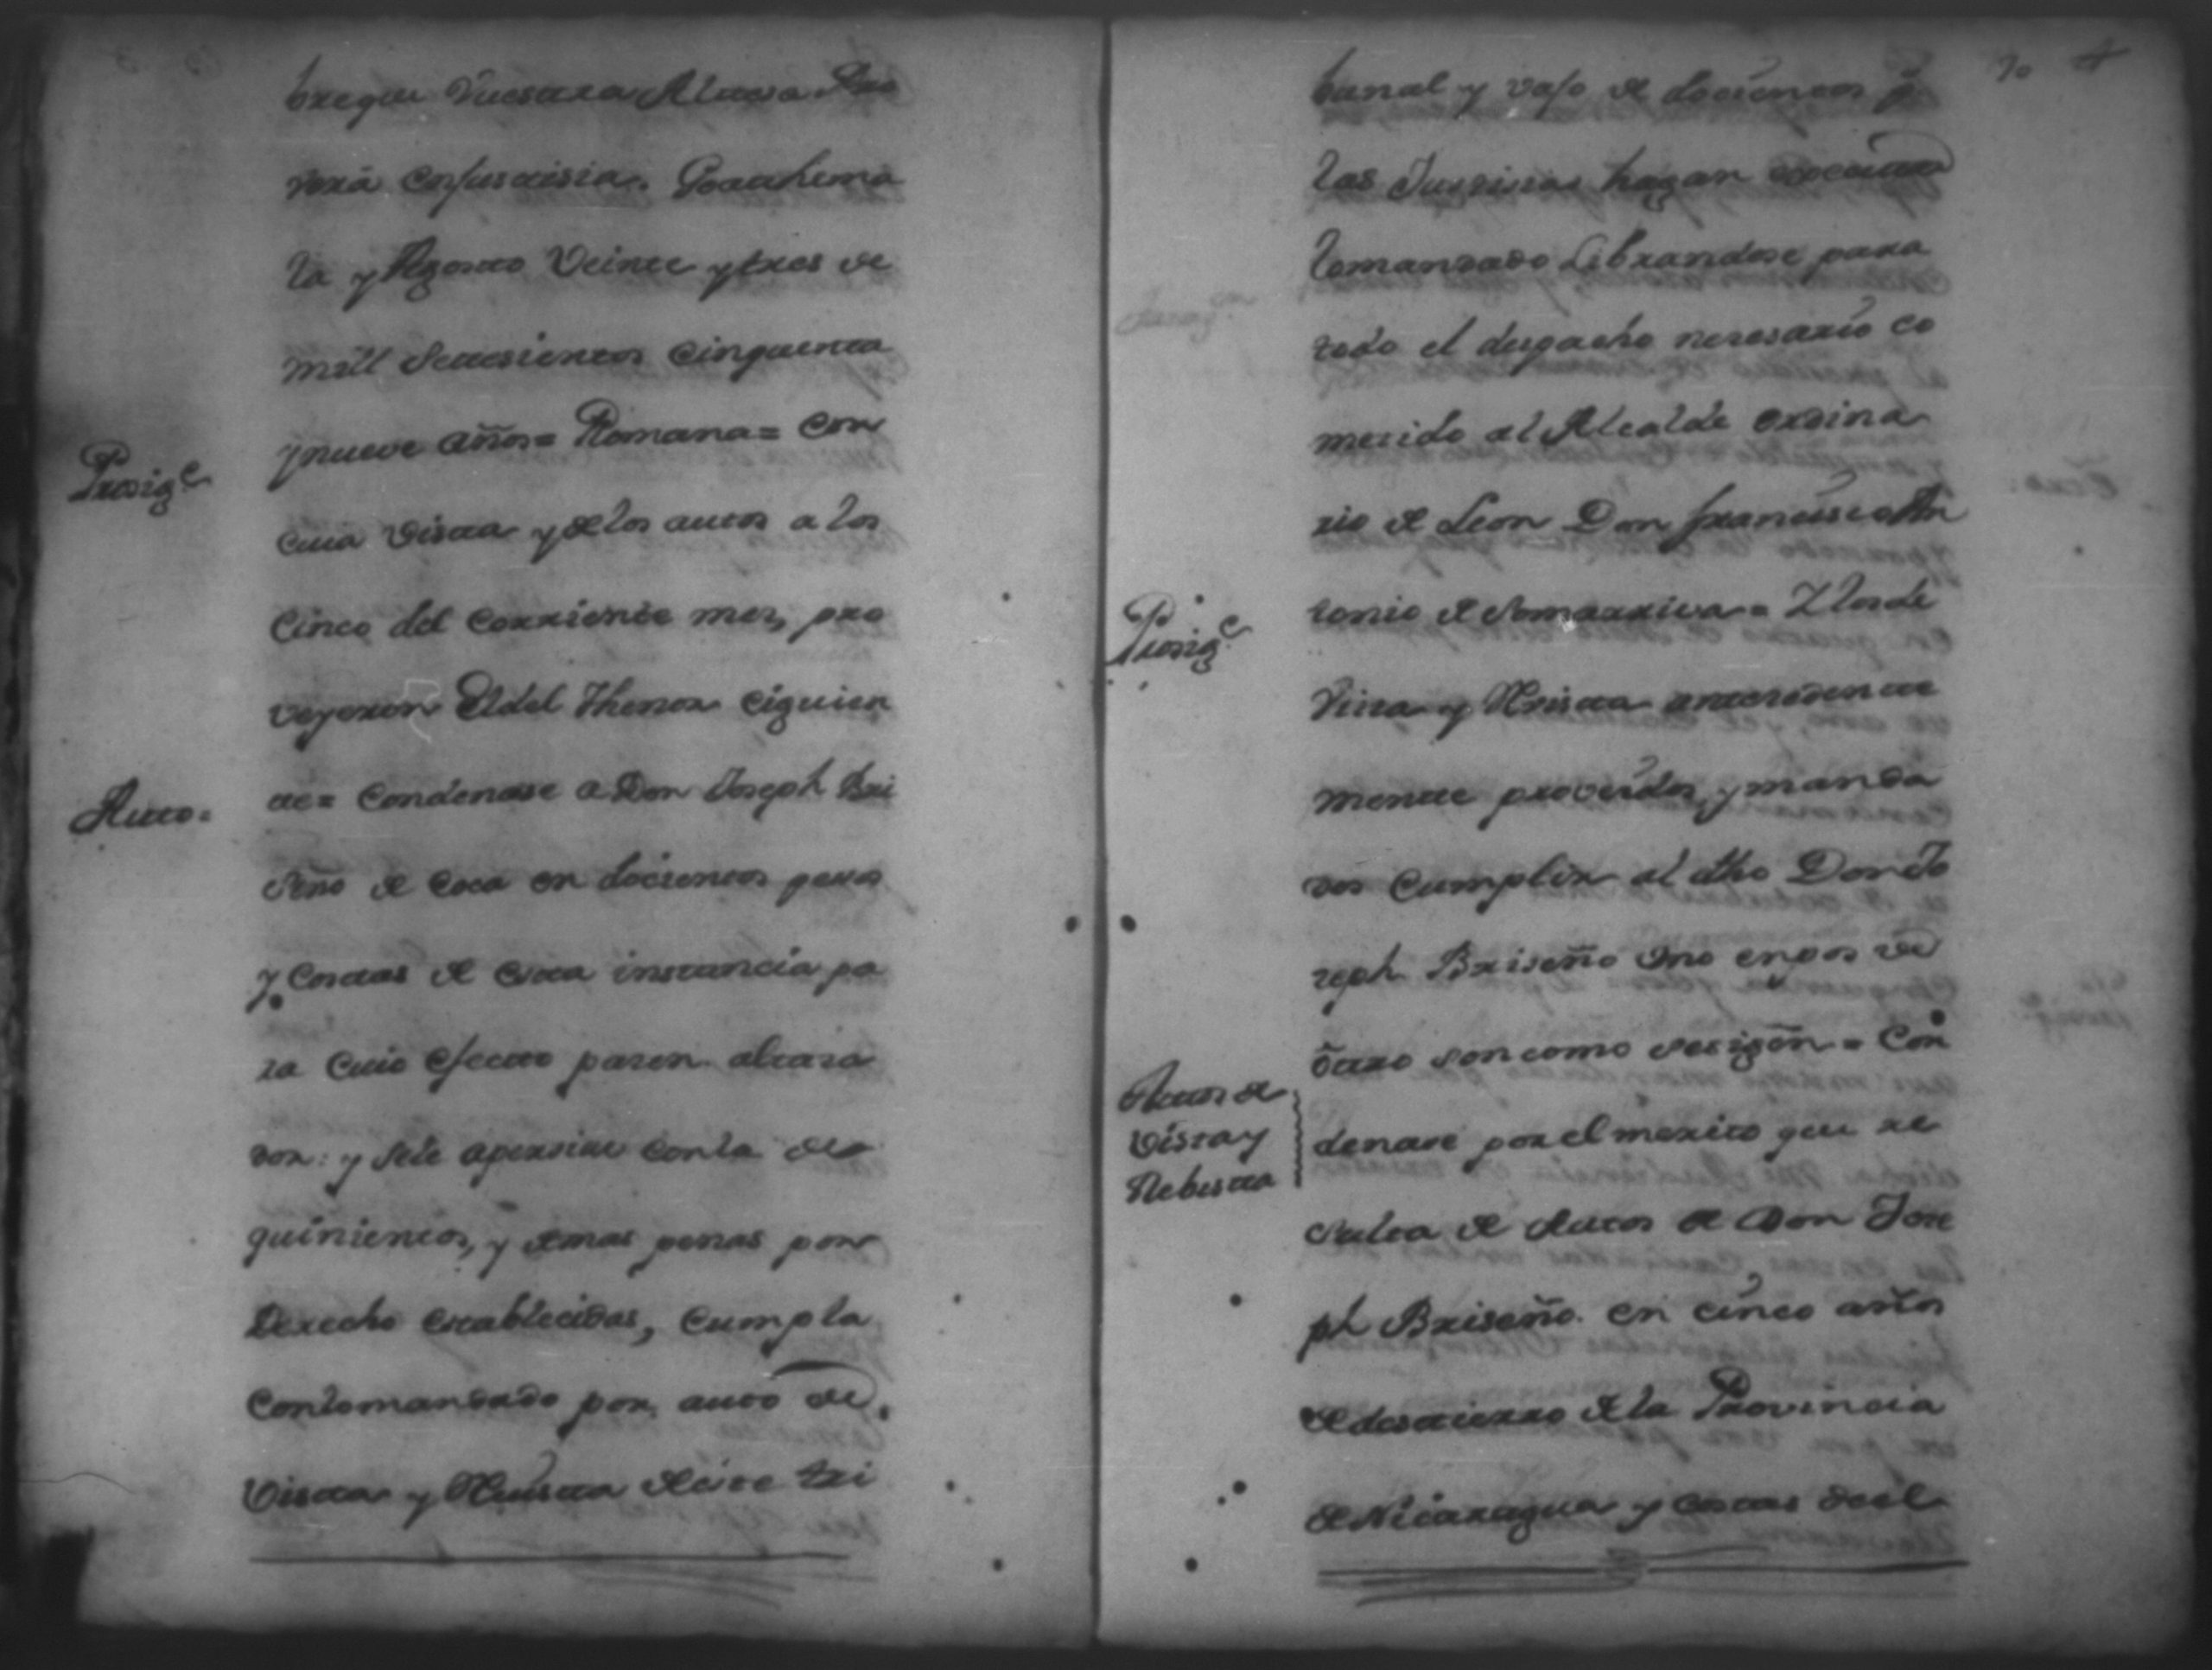 bre que Vuestra Alteza Pro
verá enjusticia. Goathema
la y Agosto Veinte y tres de
mill Setesientos Cinquenta
y nueve años = Romana = Con
Prosig.e
cuia Vista y de los autos a los
Cinco del Corriente mes, pro
veyeron El del Thenor Ciguien
Auto =
te = Condenase a Don Joseph Bri
seño de Coca en docientos pesos
y Costas de esta instancia pa
ra Cuio efecto pasen al tasa
dor: y sele apersive con la de
quinientos, y demas penas por
Derecho establecidas, Cumpla
Conlomandado por auto de
Vista y Revista de este tri
bunal y vajo de docientos p.s
las Justicias hagan executar
lomandado Librandose para
todo el despacho necesario co
metido al Alcalde ordina
rio de Leon Don francisco An
tonio de Somarriva = Y los de
Prosig.e
Vista y Revista antecedente
mente proveidos, y manda
dos Cumplir al dho Don Jo
seph Briseño Uno enpos de
otro son como sesigen = Con
Autos de
Vista y
Rebista
denase por el merito que re
sulta de Autos a Don Jose
ph Briseño en cinco años
de destierro de la Provincia
de Nicaragua y costas de el